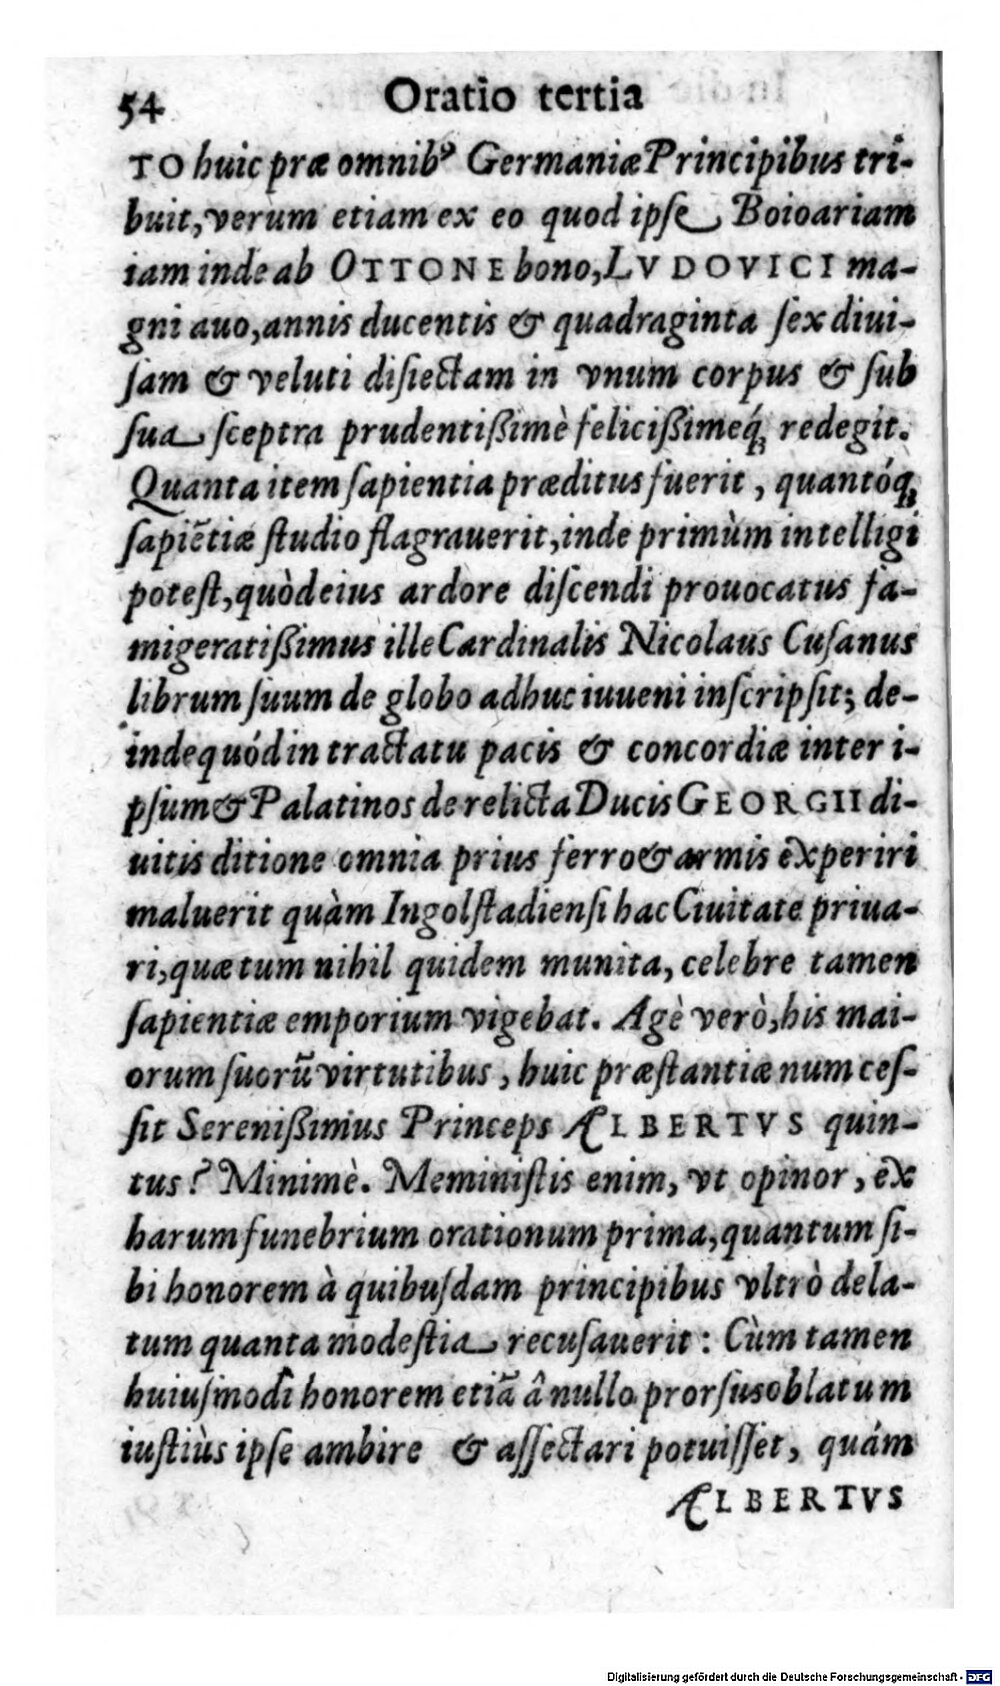 54 Oratio tertia
TO huic præ omnibꝰ Germaniæ Principibus tri-
buit, verum etiam ex eo quod ipſe Boioariam
iam inde ab OTTONE bono, LVDOVICI ma-
gni auo, annis ducentis & quadraginta ſex diui-
ſam & veluti diſiectam in vnum corpus & ſub
ſua ſceptra prudentiſſimè feliciſſimeq́; redegit.
Quanta item ſapientia præditus fuerit, quantóq;
ſapiẽtiæ ſtudio flagrauerit, inde primùm intelligi
poteſt, quòd eius ardore diſcendi prouocatus fa-
migeratiſſimus ille Cardinalis Nicolaus Cuſanus
librum ſuum de globo adhuc iuueni inſcripſit; de-
inde quód in tractatu pacis & concordiæ inter i-
pſum & Palatinos de relicta Ducis GEORGII di-
uitis ditione omnia prius ferro & armis experiri
maluerit quàm Ingolſtadienſi hac Ciuitate priua-
ri, quæ tum nihil quidem munita, celebre tamen
ſapientiæ emporium vigebat. Agè verò, his mai-
orum ſuorũ virtutibus, huic præſtantiæ num ceſ-
ſit Sereniſſimus Princeps ÆLBERTVS quin-
tus? Minimè. Meminiſtis enim, vt opinor, ex
harum funebrium orationum prima, quantum ſi-
bi honorem à quibuſdam principibus vltrò dela-
tum quanta modeſtia recuſauerit: Cùm tamen
huiuſmodi honorem etiã â nullo prorſus oblatum
iuſtiùs ipſe ambire & aſſectari potuiſſet, quám
ÆLBERTVS
Digitalisierung gefördert durch die Deutsche Forschungsgemeinschaft - DFG